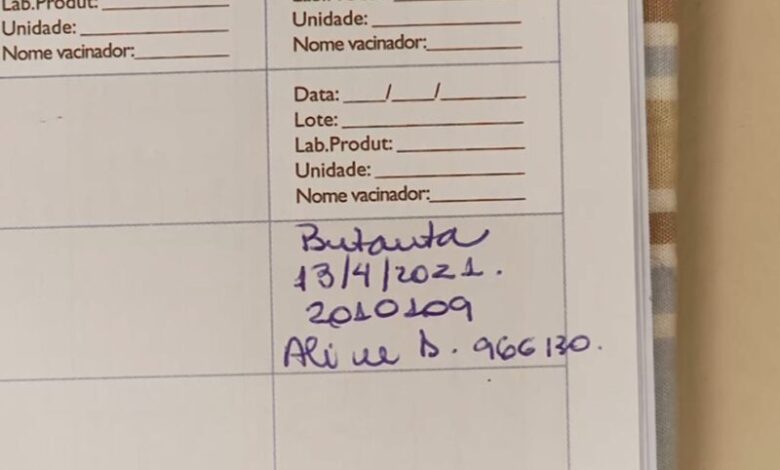 Lab.Produt:
Unidade:
Nome vacinador:
Unidade:
Nome vacinador:
Data: ___/___/______
Lote:
Lab.Produt:
Unidade:
Nome vacinador:
Butanta
13/4/2021.
2010109
Aline D. 966130.